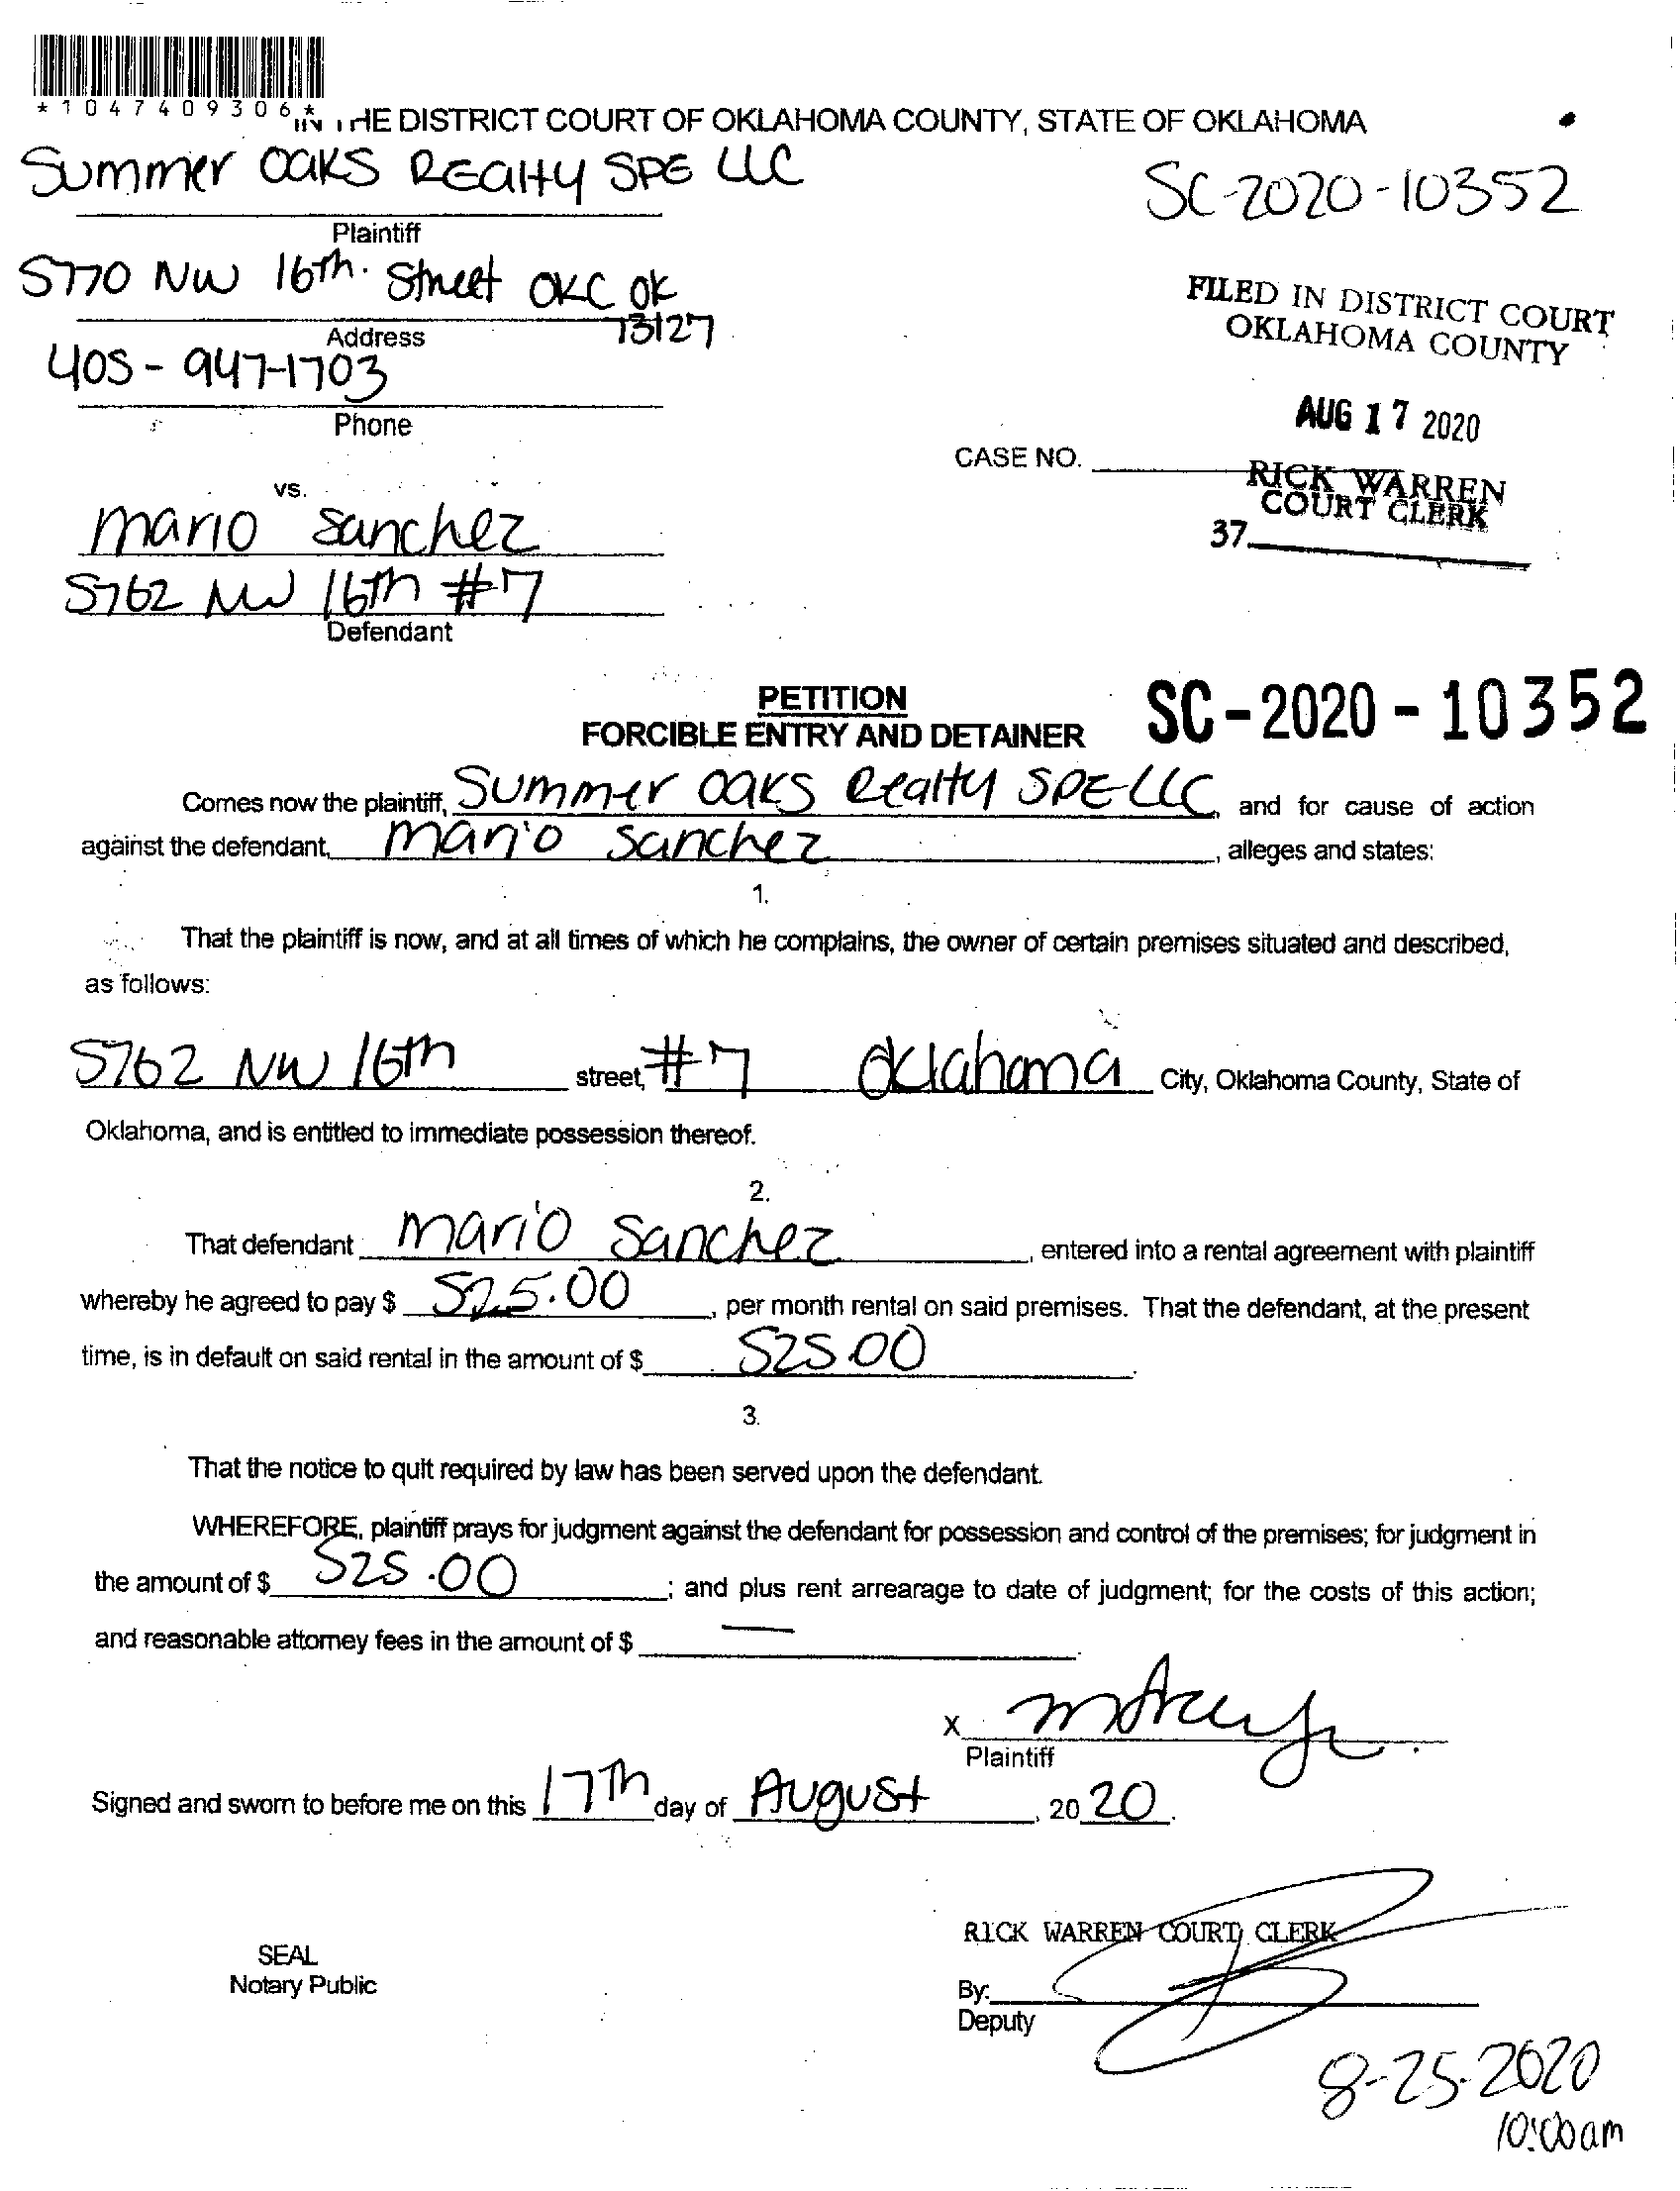 *1047409306*
IN THE DISTRICT COURT OF OKLAHOMA COUNTY, STATE OF OKLAHOMA
Summer Oaks Realty SPE LLC
SC-2020-10352
Plaintiff
5770 NW 16th. Street OKC OK
73127
Address
405-947-1703
Phone
FILED IN DISTRICT COURT
OKLAHOMA COUNTY
AUG 17 2020
CASE NO.
RICK WARREN
COURT CLERK
37
vs.
Mario Sanchez
5762 NW 16th #7
Defendant
PETITION
FORCIBLE ENTRY AND DETAINER
SC-2020-10352
Comes now the plaintiff, Summer Oaks Realty SPE LLC, and for cause of action
against the defendant, Mario Sanchez, alleges and states:
1.
That the plaintiff is now, and at all times of which he complains, the owner of certain premises situated and described,
as follows:
5762 NW 16th street, #7 Oklahoma City, Oklahoma County, State of
Oklahoma, and is entitled to immediate possession thereof.
2.
That defendant Mario Sanchez, entered into a rental agreement with plaintiff
whereby he agreed to pay $ 525.00, per month rental on said premises. That the defendant, at the present
time, is in default on said rental in the amount of $ 525.00.
3.
That the notice to quit required by law has been served upon the defendant.
WHEREFORE, plaintiff prays for judgment against the defendant for possession and control of the premises; for judgment in
the amount of $ 525.00; and plus rent arrearage to date of judgment; for the costs of this action;
and reasonable attorney fees in the amount of $ —.
X
Plaintiff
Signed and sworn to before me on this 17th day of August, 2020.
RICK WARREN COURT CLERK
SEAL
Notary Public
By:
Deputy
8-25-2020
10:00am